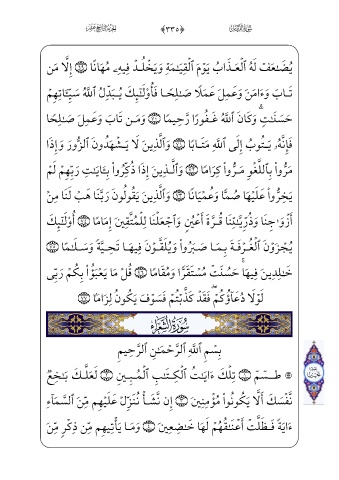 سورة الفرقان ﴿٣٣٥﴾ الجزء التاسع عشر
يُضَٰعَفْ لَهُ ٱلْعَذَابُ يَوْمَ ٱلْقِيَٰمَةِ وَيَخْلُدْ فِيهِۦ مُهَانًا ۝٦٩ إِلَّا مَن
تَابَ وَءَامَنَ وَعَمِلَ عَمَلًا صَٰلِحًا فَأُو۟لَٰٓئِكَ يُبَدِّلُ ٱللَّهُ سَيِّـَٔاتِهِمْ
حَسَنَٰتٍ ۗ وَكَانَ ٱللَّهُ غَفُورًا رَّحِيمًا ۝٧٠ وَمَن تَابَ وَعَمِلَ صَٰلِحًا
فَإِنَّهُۥ يَتُوبُ إِلَى ٱللَّهِ مَتَابًا ۝٧١ وَٱلَّذِينَ لَا يَشْهَدُونَ ٱلزُّورَ وَإِذَا
مَرُّوا۟ بِٱللَّغْوِ مَرُّوا۟ كِرَامًا ۝٧٢ وَٱلَّذِينَ إِذَا ذُكِّرُوا۟ بِـَٔايَٰتِ رَبِّهِمْ لَمْ
يَخِرُّوا۟ عَلَيْهَا صُمًّا وَعُمْيَانًا ۝٧٣ وَٱلَّذِينَ يَقُولُونَ رَبَّنَا هَبْ لَنَا مِنْ
أَزْوَٰجِنَا وَذُرِّيَّٰتِنَا قُرَّةَ أَعْيُنٍ وَٱجْعَلْنَا لِلْمُتَّقِينَ إِمَامًا ۝٧٤ أُو۟لَٰٓئِكَ
يُجْزَوْنَ ٱلْغُرْفَةَ بِمَا صَبَرُوا۟ وَيُلَقَّوْنَ فِيهَا تَحِيَّةً وَسَلَٰمًا ۝٧٥
خَٰلِدِينَ فِيهَا ۚ حَسُنَتْ مُسْتَقَرًّا وَمُقَامًا ۝٧٦ قُلْ مَا يَعْبَؤُا۟ بِكُمْ رَبِّى
لَوْلَا دُعَآؤُكُمْ ۖ فَقَدْ كَذَّبْتُمْ فَسَوْفَ يَكُونُ لِزَامًۢا ۝٧٧
سُورَةُ الشُّعَرَاءِ
بِسْمِ ٱللَّهِ ٱلرَّحْمَٰنِ ٱلرَّحِيمِ
۞ طسٓمٓ ۝١ تِلْكَ ءَايَٰتُ ٱلْكِتَٰبِ ٱلْمُبِينِ ۝٢ لَعَلَّكَ بَٰخِعٌ
نَّفْسَكَ أَلَّا يَكُونُوا۟ مُؤْمِنِينَ ۝٣ إِن نَّشَأْ نُنَزِّلْ عَلَيْهِم مِّنَ ٱلسَّمَآءِ
ءَايَةً فَظَلَّتْ أَعْنَٰقُهُمْ لَهَا خَٰضِعِينَ ۝٤ وَمَا يَأْتِيهِم مِّن ذِكْرٍ مِّنَ